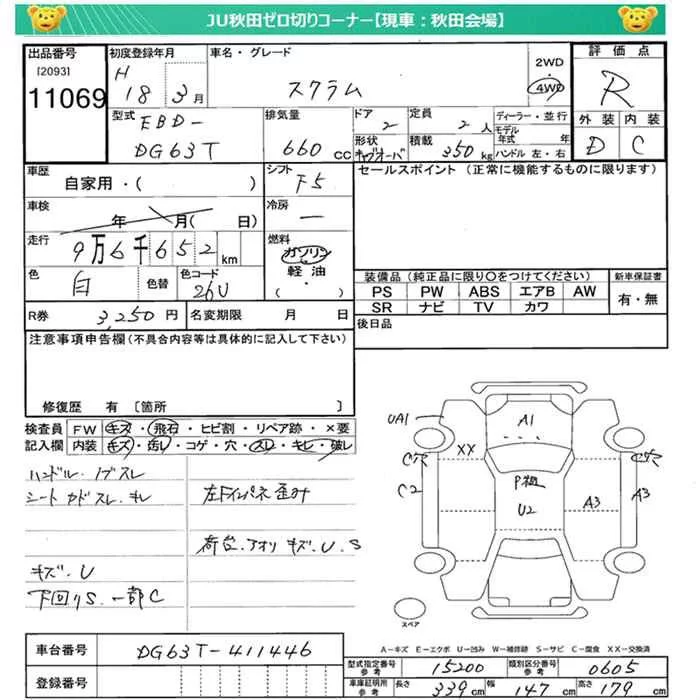 JU秋田ゼロ切りコーナー【現車：秋田会場】
出品番号 初度登録年月 車名・グレード 評価点
［2093］ H 2WD・
11069 18年 3月 スクラム 4WD R
型式 排気量 ドア 定員 ディーラー・並行 外装 内装
EBD- 2 2人 モデル年式 年
DG63T 660cc 形状 積載 ハンドル 左・右 D C
キャブオーバ 350kg
車歴 シフト セールスポイント（正常に機能するものに限ります）
自家用・( ) F5
車検 冷房
年 月( 日) —
走行 燃料
9万6千652km ガソリン・
色 色替 色コード 軽油・
白 26U ( )
装備品（純正品に限り○をつけてください） 新車保証書
PS PW ABS エアB AW 有・無
SR ナビ TV カワ
R券 3,250円 名変期限 月 日 後日品
注意事項申告欄（不具合内容等は具体的に記入して下さい）
修復歴 有 〔箇所 〕
検査員 FW キズ・飛石・ヒビ割・リペア跡・×要
記入欄 内装 キズ・汚レ・コゲ・穴・スレ・キレ・破レ
ハンドル・ノブスレ
シート カドスレ・キレ 左Fインパネ歪み
荷台・アオリ キズ・U・S
キズ・U
下回りS・一部C
UA1 A1
XX C穴 C穴
C2 P極 U2 A3 A3
スペア
A－キズ E－エクボ U－凹み W－補修跡 S－サビ C－腐食 XX－交換済
車台番号 DG63T-411446
登録番号
型式指定番号 参考 15200 類別区分番号 参考 0605
車庫証明用 参考 長さ 339cm 幅 147cm 高さ 179cm